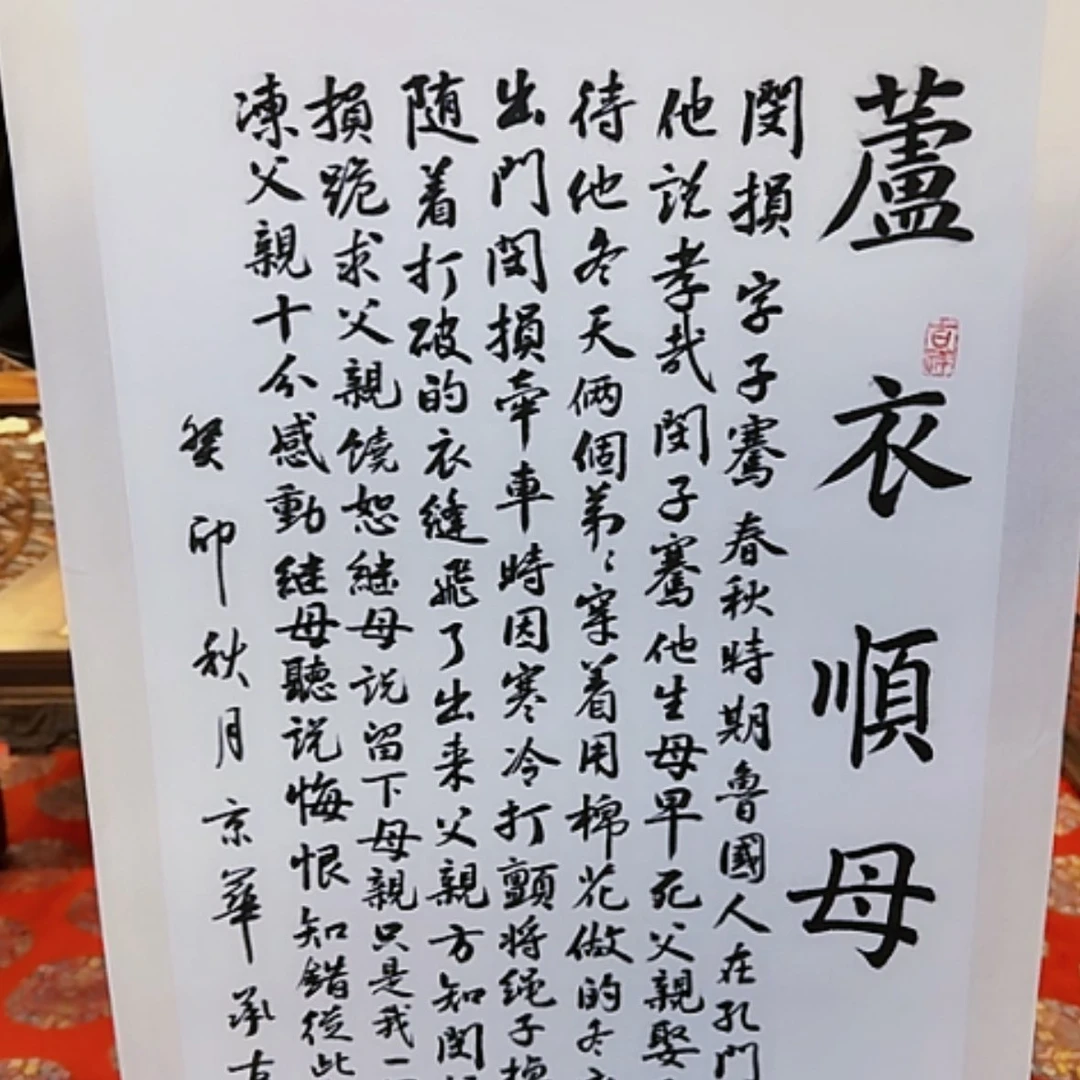 蘆衣順母
閔損字子騫春秋時期魯國人在孔門
他説孝哉閔子騫他生母早死父親娶
待他冬天俩個弟〻穿着用棉花做的冬衣
出門閔損牽車時因寒冷打顫將绳子掉
随着打破的衣縫飛了出来父親方知閔
損跪求父親饒恕継母説留下母親只是我一
凍父親十分感動継母聽説悔恨知錯從此
癸卯秋月京華承
吉祥